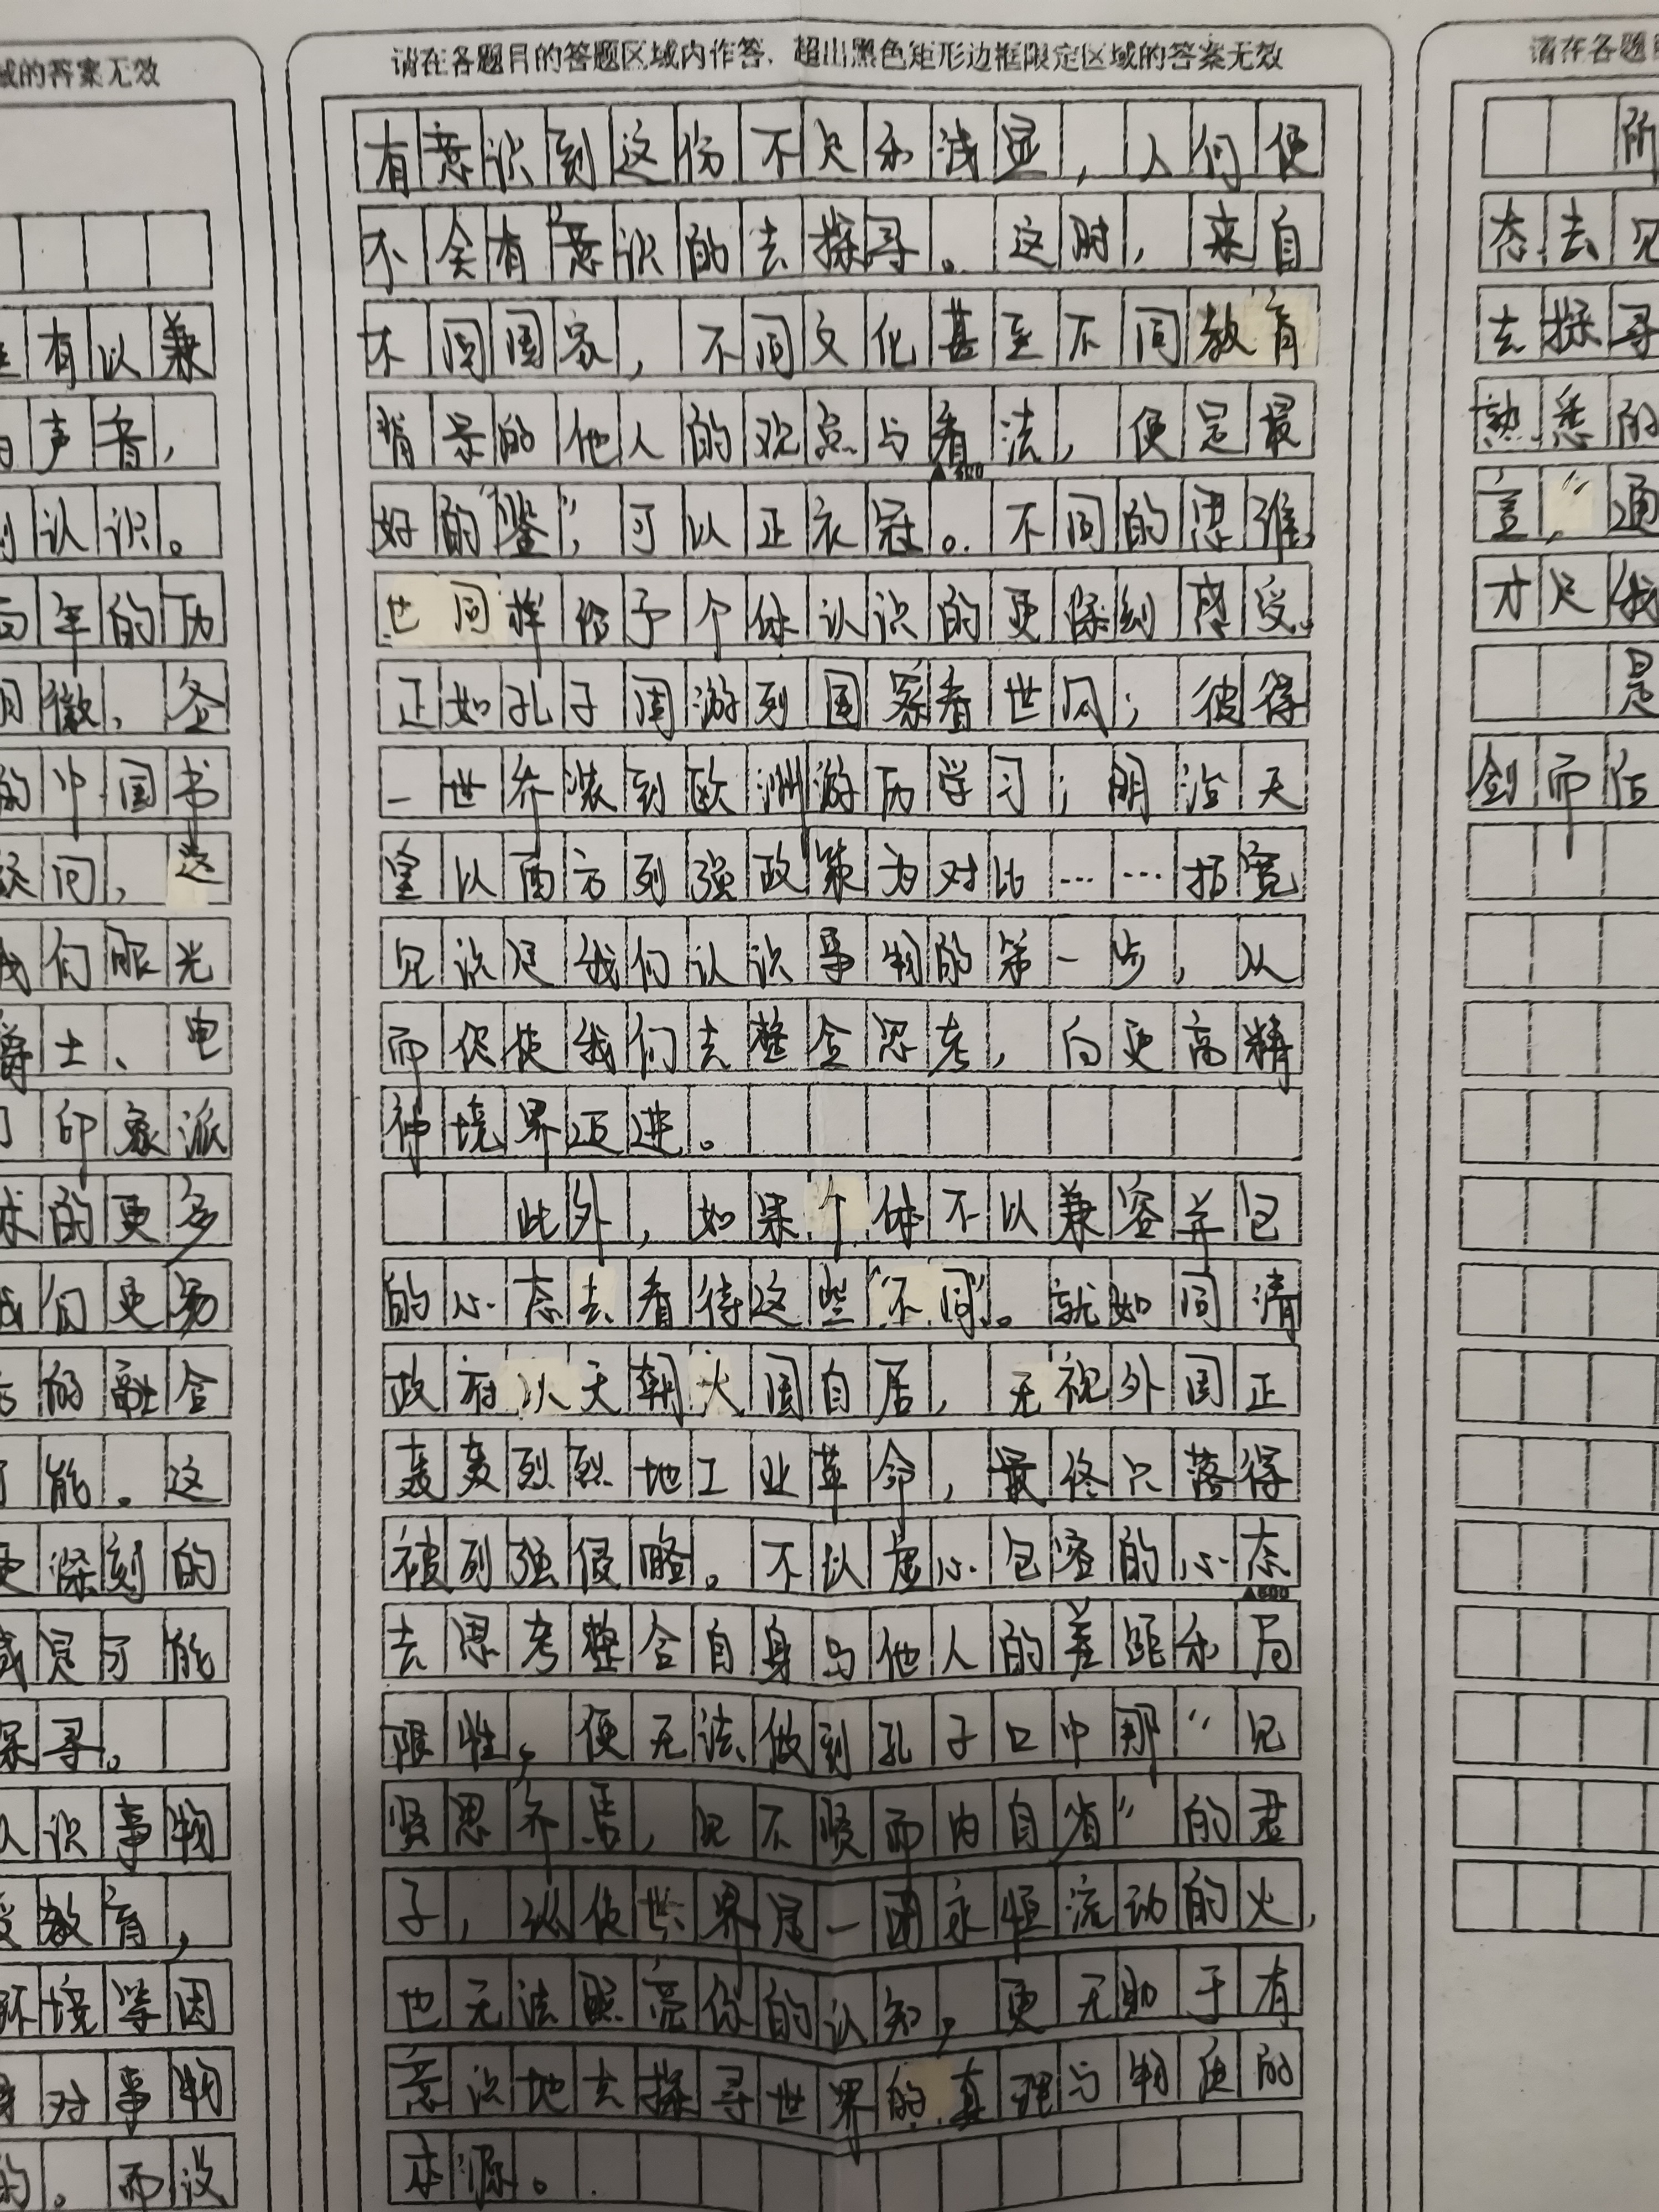 域的答案无效
有以兼
声音,
认识。
年的历
徽、签
的中国书
问,这
我们眼光
爵士、电
印象派
术的更多
我们更易
的融合
能。这
更深刻的
或是可能
探寻。
认识事物
受教育,
环境等因
对事物
的。而没
请在各题目的答题区域内作答,超出黑色矩形边框限定区域的答案无效
有意识到这份不足和浅显,人们便
不会有意识的去探寻。这时,来自
不同国家,不同文化甚至不同教育
背景的他人的观点与看法,便是最
▲400
好的“鉴”,可以正衣冠。不同的思维,
也同样给予个体认识的更深刻感受。
正如孔子周游列国察看世风;彼得
一世乔装到欧洲游历学习;明治天
皇以西方列强政策为对比……拓宽
见识是我们认识事物的第一步,从
而促使我们去整合思考,向更高精
神境界迈进。
此外,如果个体不以兼容并包
的心态去看待这些“不同”。就如同清
政府以天朝大国自居,无视外国正
轰轰烈烈地工业革命,最终只落得
被列强侵略。不以虚心包容的心态
▲600
去思考整合自身与他人的差距和局
限性,便无法做到孔子口中那“见
贤思齐焉,见不贤而内自省”的君
子,纵使世界是一团永恒流动的火,
也无法照亮你的认知,更无助于有
意识地去探寻世界的真理与物质的
本源。
请在各题
所
态去见
去探寻
熟悉的
言”,通
才是我
是
剑而伍